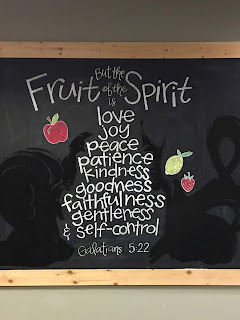 But the
Fruit of the Spirit
is
love
joy
peace
patience
kindness
goodness
faithfulness
gentleness
& self-control
Galatians 5:22